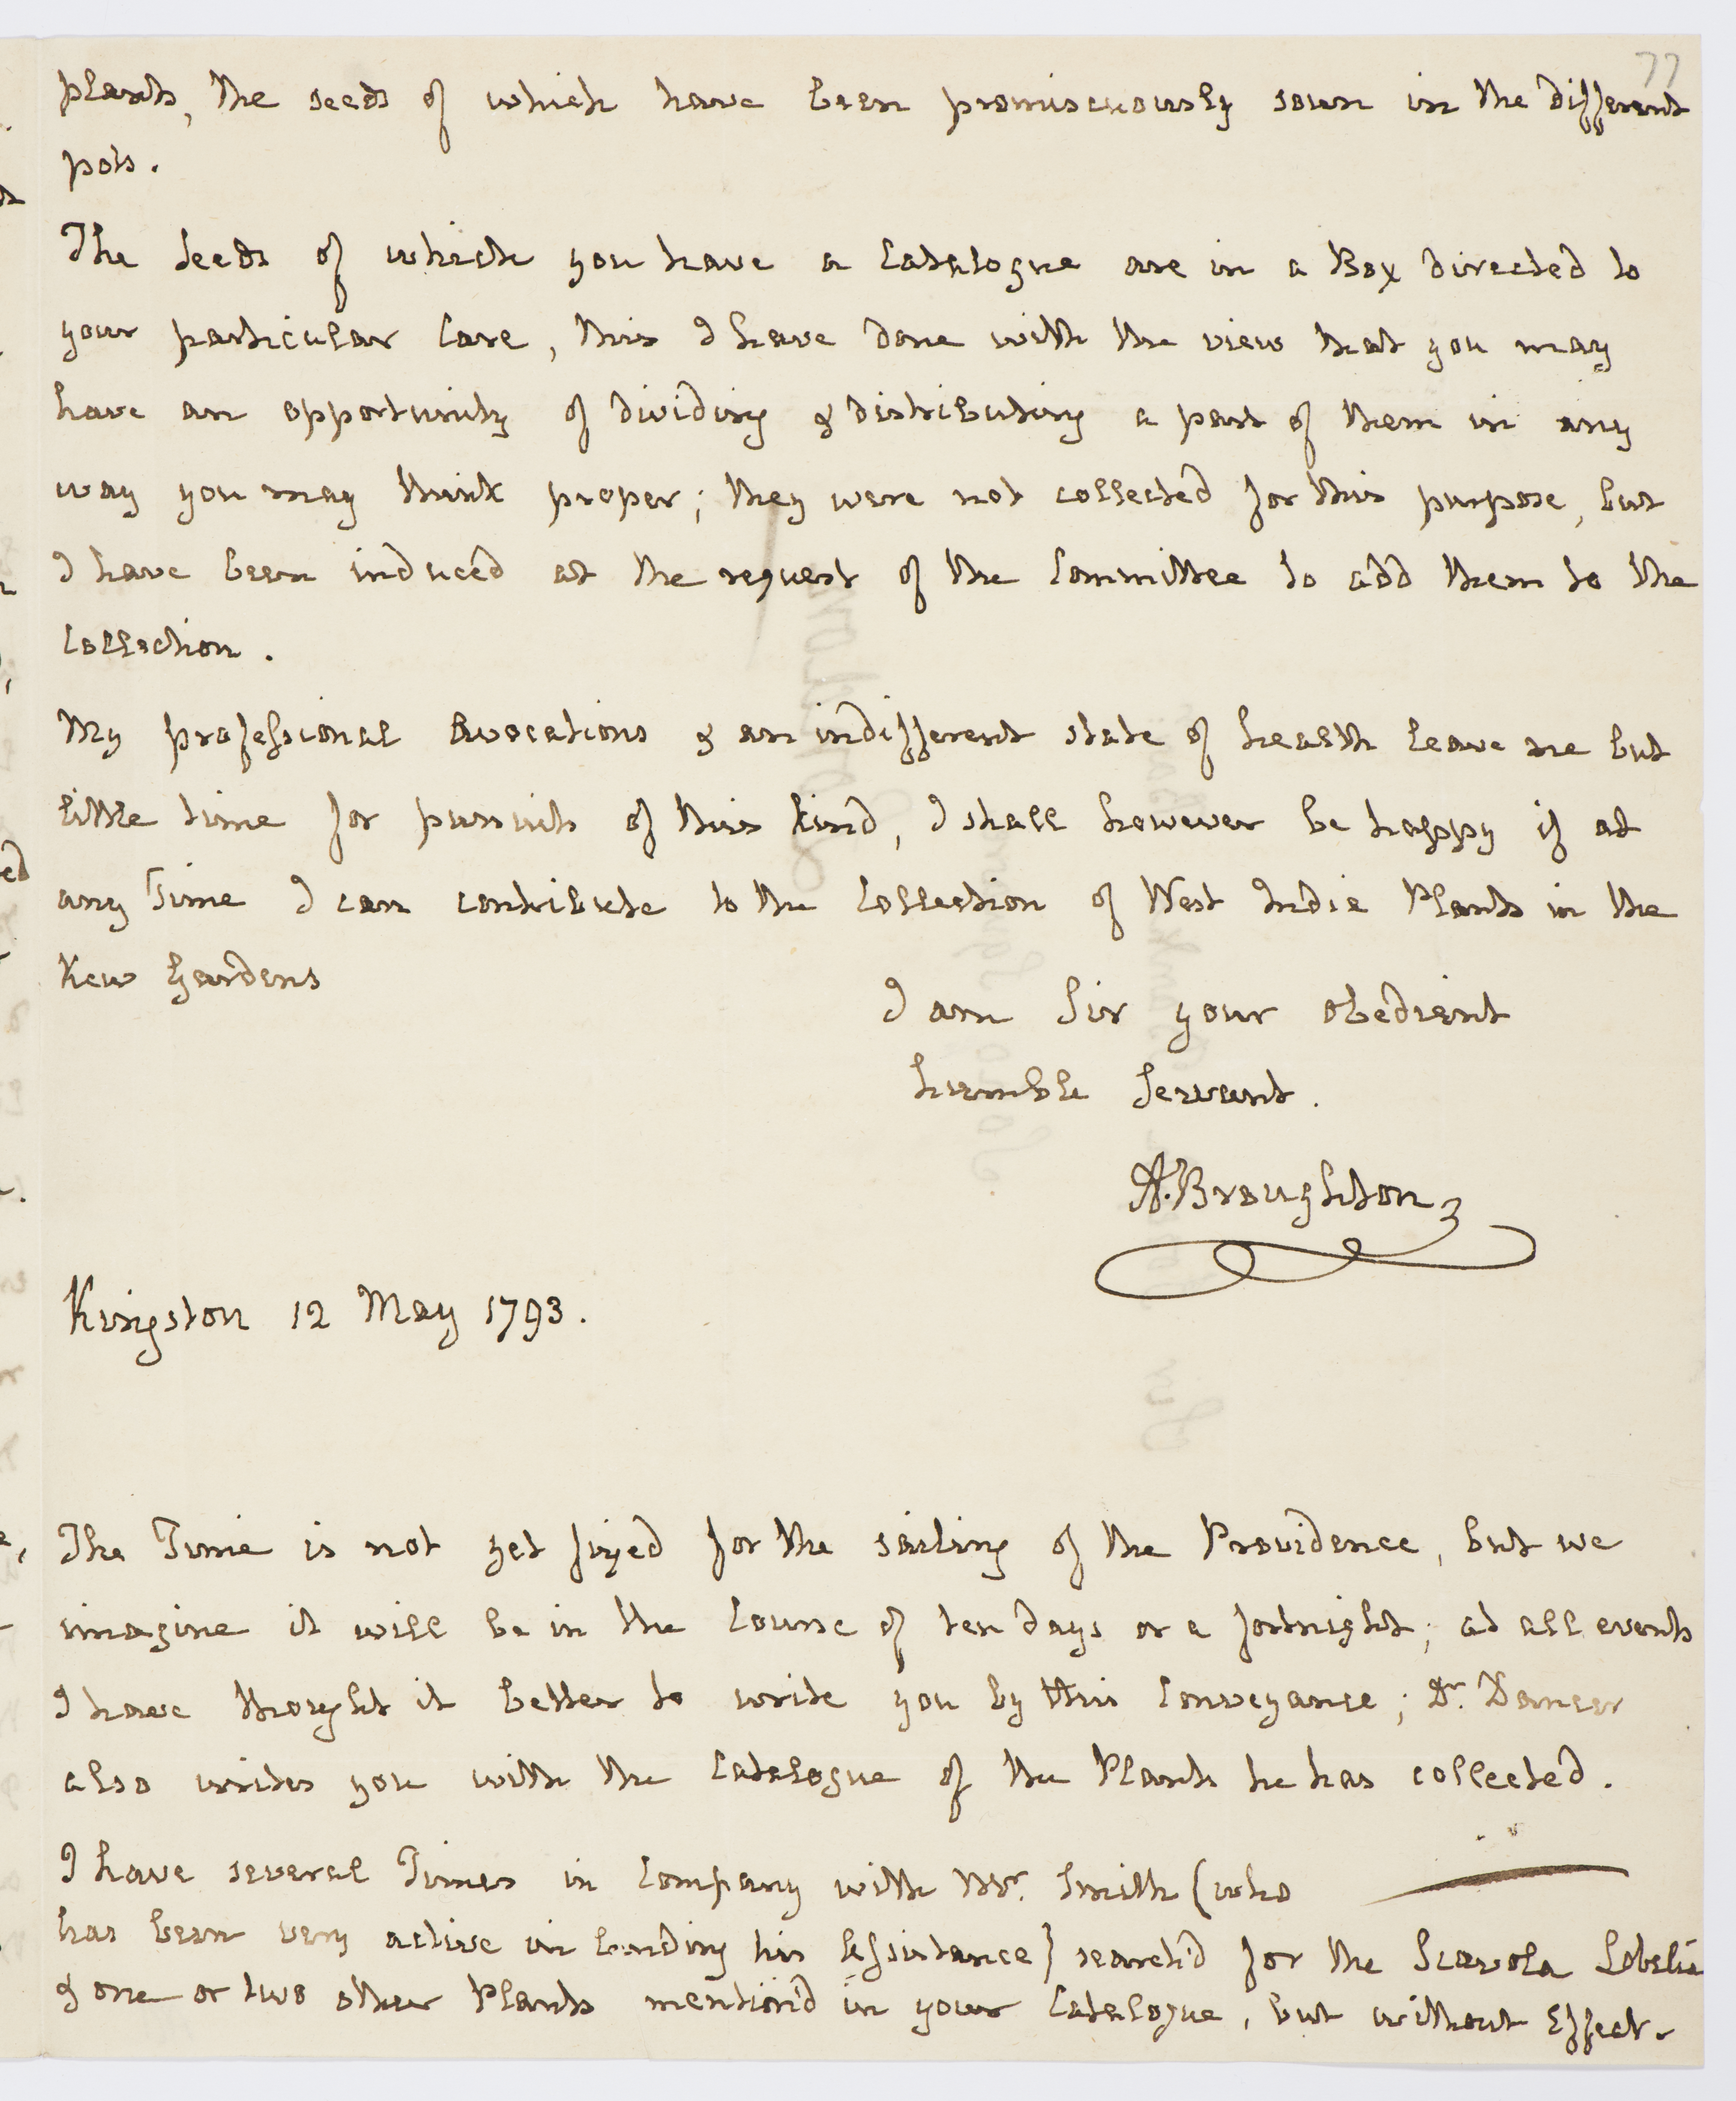 77
plants, the seeds of which have been promiscuously sown in the different
pots.
The Seeds of which you have a Catalogue are in a Box directed to
your particular Care, this I have done with the view that you may
have an opportunity of dividing & distributing a part of them in any
way you may think proper; they were not collected for this purpose, but
I have been induced at the request of the Committee to add them to the
Collection.
My professional Avocations & an indifferent state of health leave me but
little time for pursuits of this kind, I shall however be happy if at
any Time I can contribute to the Collection of West India Plants in the
Kew Gardens
I am Sir your obedient
humble Servant.
A. Broughton
Kingston 12 May 1793.
The Time is not yet fixed for the sailing of the Providence, but we
imagine it will be in the Course of ten days or a fortnight; at all events
I have thought it better to write you by this Conveyance; Dr. Dancer
also writes you with the Catalogue of the Plants he has collected.
I have several Times in Company with Mr. Smith (who
has been very active in lending his Assistance) search'd for the Scavola Lobelia
& one or two other Plants mention'd in your Catalogue, but without Effect.